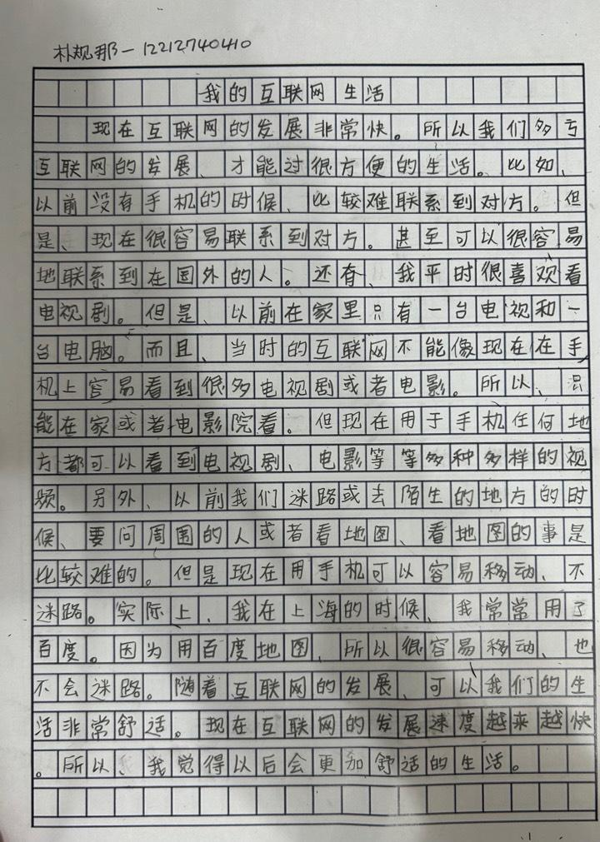 朴规那-12212740410
我的互联网生活
现在互联网的发展非常快。所以我们多亏
互联网的发展、才能过很方便的生活。比如、
以前没有手机的时候、比较难联系到对方。但
是、现在很容易联系到对方。甚至可以很容易
地联系到在国外的人。还有、我平时很喜观看
电视剧。但是、以前在家里只有一台电视和一
台电脑。而且、当时的互联网不能像现在在手
机上容易看到很多电视剧或者电影。所以、只
能在家或者电影院看。但现在用于手机任何地
方都可以看到电视剧、电影等等多种多样的视
频。另外、以前我们迷路或去陌生的地方的时
候、要问周围的人或者看地图、看地图的事是
比较难的。但是现在用手机可以容易移动、不
迷路。实际上、我在上海的时候、我常常用了
百度。因为用百度地图、所以很容易移动、也
不会迷路。随着互联网的发展、可以我们的生
活非常舒适。现在互联网的发展速度越来越快
。所以、我觉得以后会更加舒适的生活。